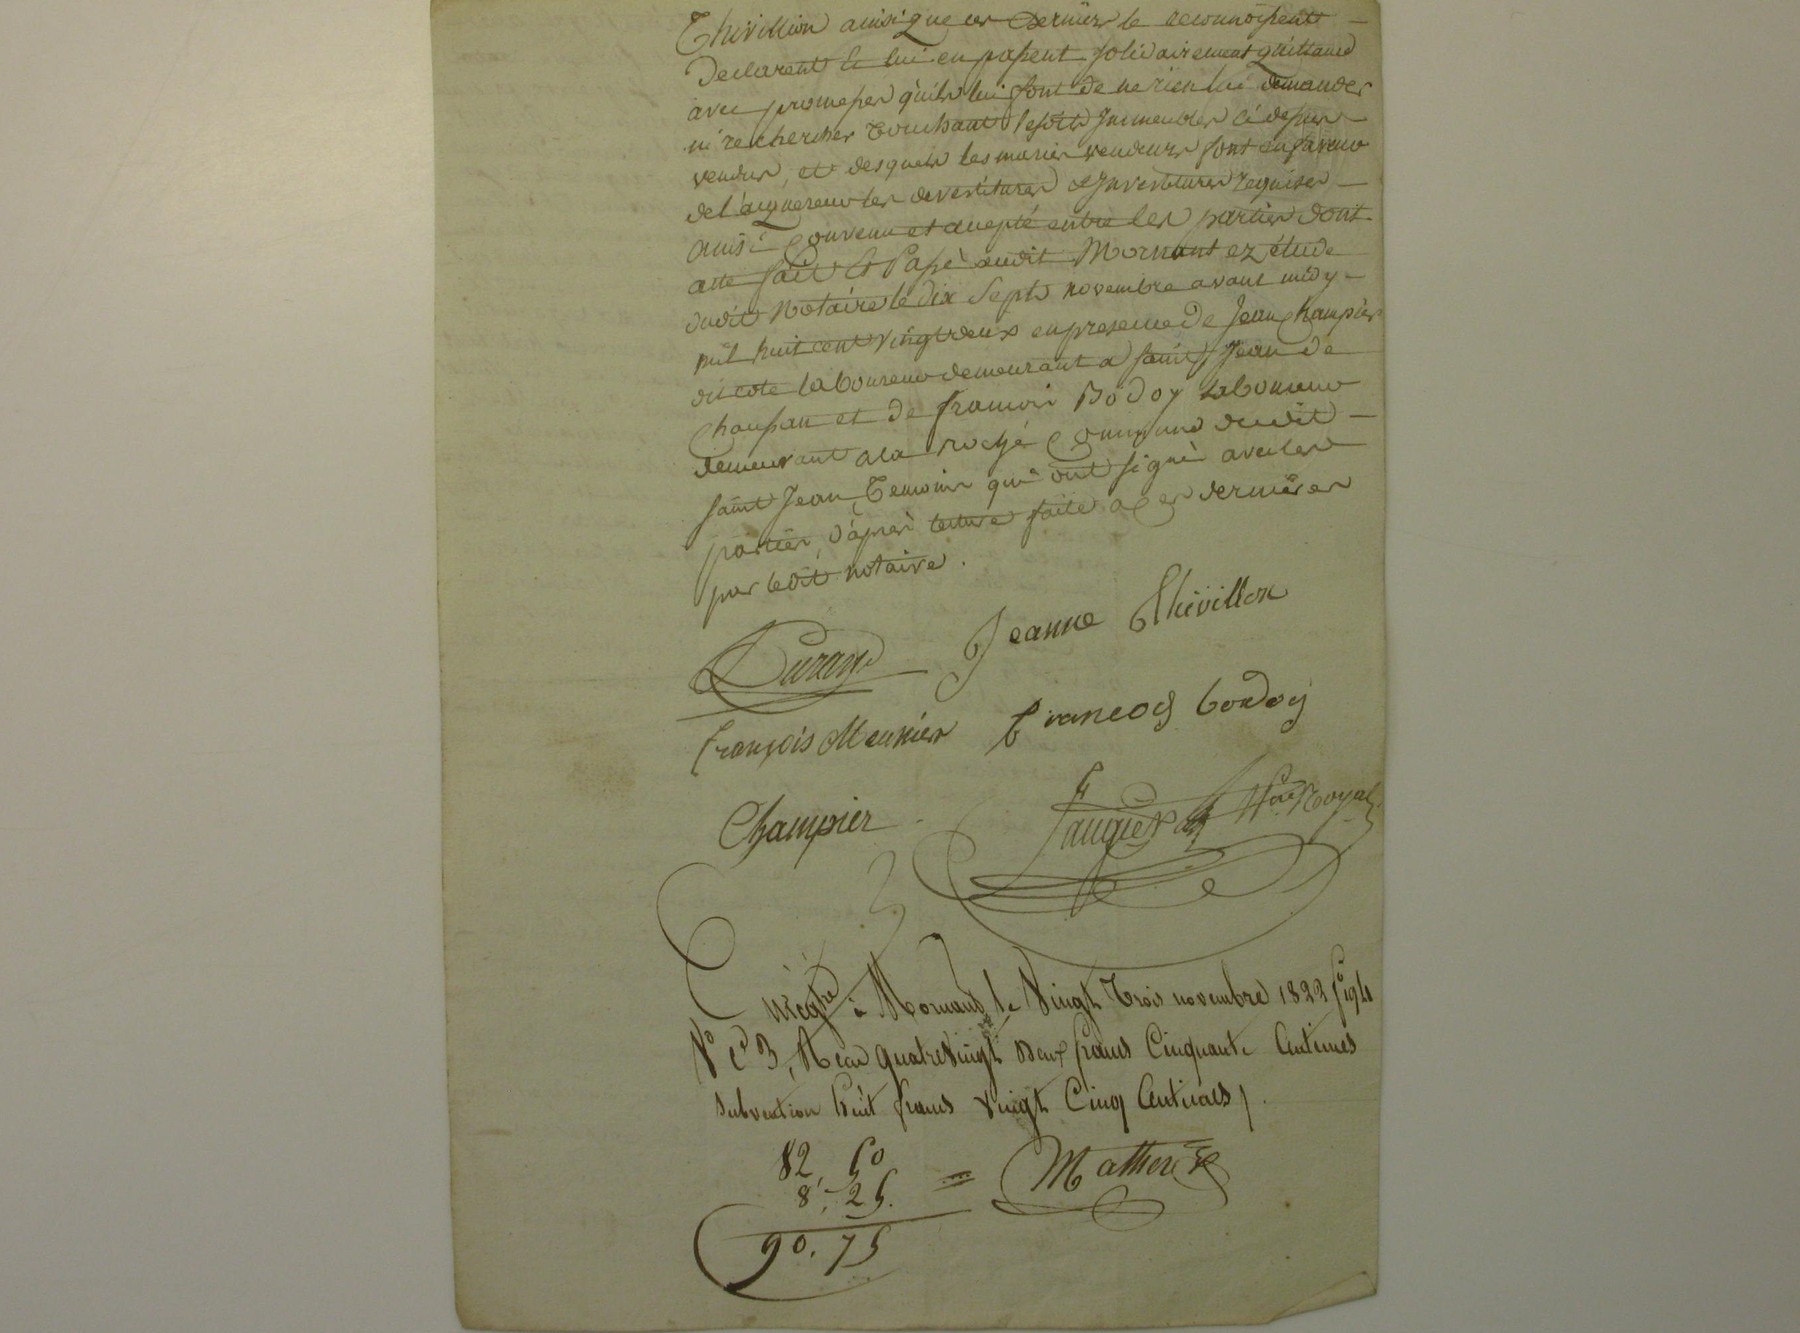 Thivillion ainsique ces derniers le reconnoissent -
declarent & lui en passent solidairement quittance
avec promesses quils lui font de ne rien lui demander
ni rechercher touchant lesdits Immeubles ci dessus
vendus, et desquels les mariés vendeurs font en faveur
de l'aquereur les devestitures & Investitures requises -
ainsi Convenu et accepté entre les parties dont
acte fait & Passé audit Mornant ez étude
dudit Notaire le dix sept novembre avant midy -
mil huit cent vingt deux en presence de Jean Champier
dit cote laboureur demeurant a saint Jean de
Chaussan et de francois Bodoy laboureur
demeurant a la roche Commune dudit -
saint Jean, Temoins qui ont signé avec les
parties, d'après lecture faite a ces dernieres
par ledit notaire.
Durand Jeanne Thivillon
françois Meunier francois bodoy
Champier
Nre Royal
Enregtré à Mornant le Vingt Trois novembre 1822 fo 94
Vo C 3, Reçu quatre Vingt Deux francs Cinquante Centimes
Subvention huit francs Vingt Cinq Centimes
82, 50
8, 25.
90. 75